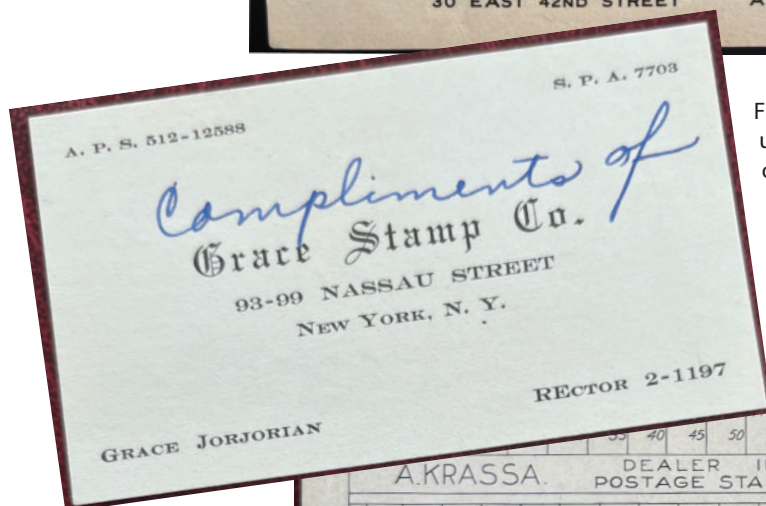 30 EAST 42ND STREET
S. P. A. 7703
A. P. S. 512-12588
Compliments of
Grace Stamp Co.
93-99 NASSAU STREET
NEW YORK, N. Y.
RECTOR 2-1197
GRACE JORJORIAN
35 40 45 50
A.KRASSA. DEALER
POSTAGE